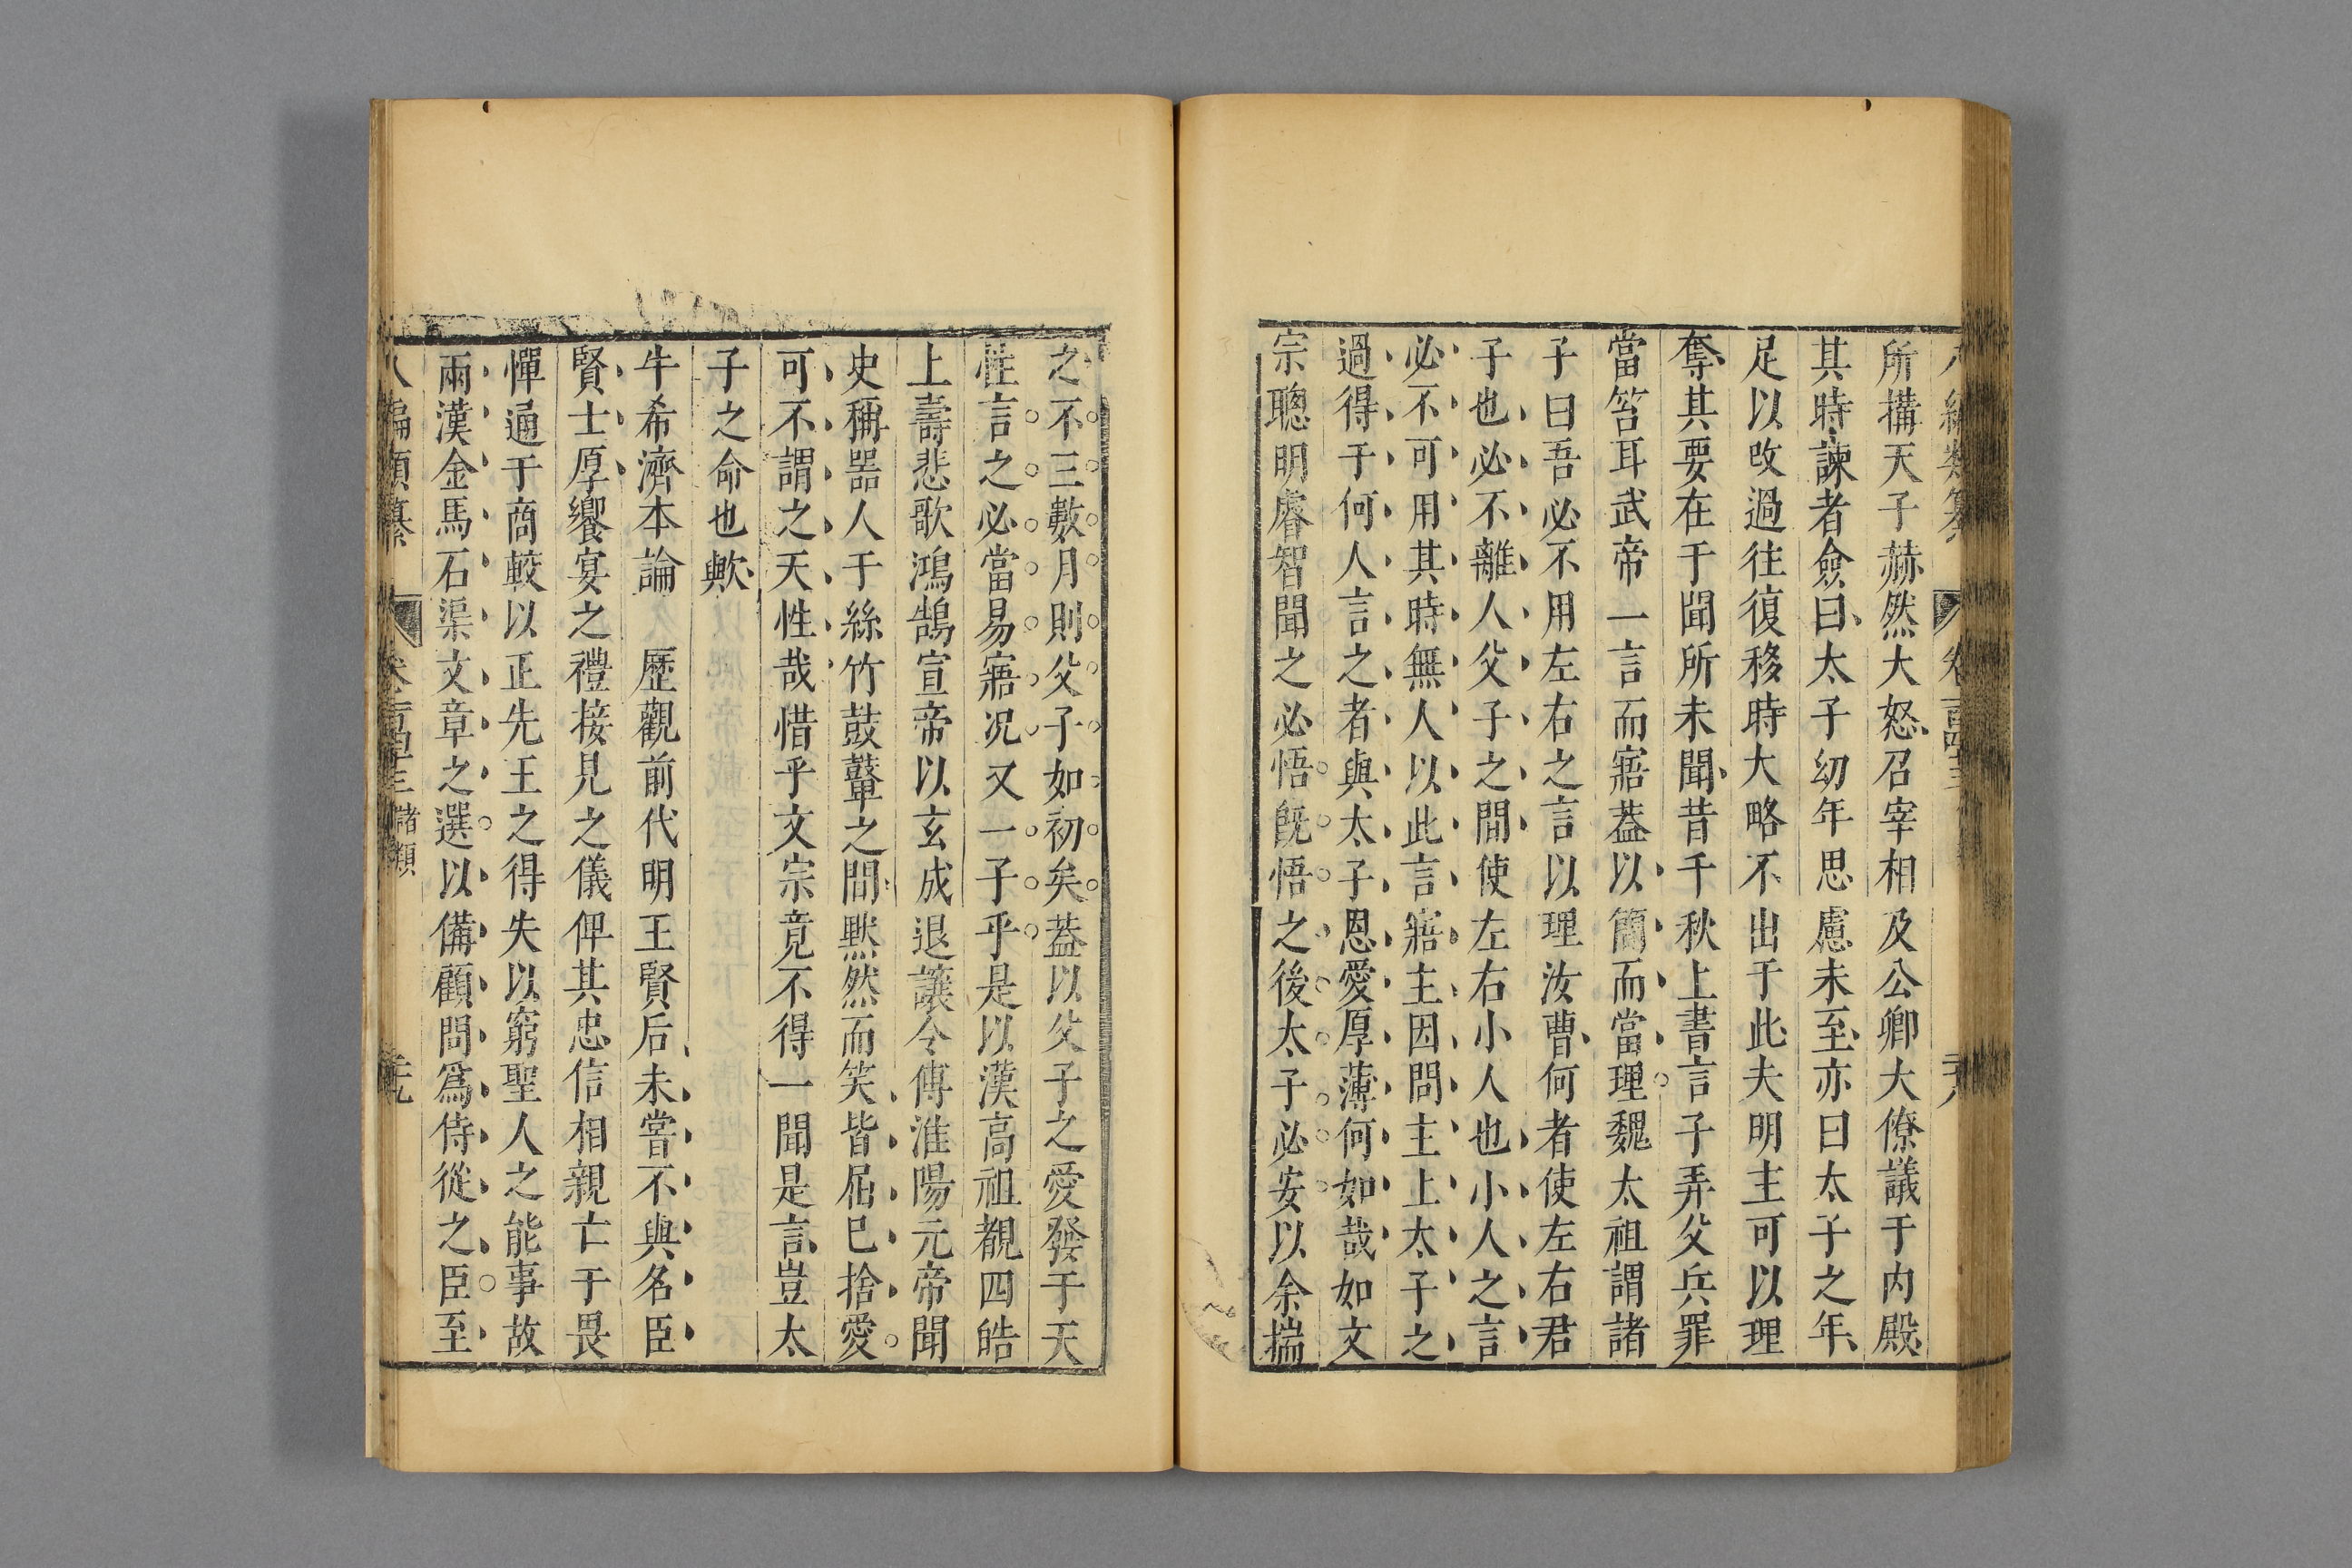 所構天子赫然大怒召宰相及公卿大僚議于内殿
其時諫者僉曰太子幼年思慮未至亦曰太子之年
足以改過往復移時大略不出于此夫明主可以理
奪其要在于聞所未聞昔千秋上書言子弄父兵罪
當笞耳武帝一言而寤葢以簡而當理魏太祖謂諸
子曰吾必不用左右之言以理汝曹何者使左右君
子也必不離人父子之間使左右小人也小人之言
必不可用其時無人以此言寤主因問主上太子之
過得于何人言之者與太子恩愛厚薄何如哉如文
宗聰明睿智聞之必悟旣悟之後太子必安以余揣
之不三數月則父子如初矣葢以父子之愛發于天
性言之必當易寤况又一子乎是以漢高祖覩四皓
上壽悲歌鴻鵠宣帝以玄成退讓令傅淮陽元帝聞
史稱噐人于絲竹鼓鼙之間黙然而笑皆屈巳捨愛
可不謂之天性哉惜乎文宗竟不得一聞是言豈太
子之命也歟
牛希濟本論 歷觀前代明王賢后未嘗不與名臣
賢士厚饗宴之禮接見之儀俾其忠信相親亡于畏
憚通于商較以正先王之得失以窮聖人之能事故
兩漢金馬石渠文章之選以備顧問爲侍從之臣至
八編類纂 卷之一百四十三 諸類 二十九